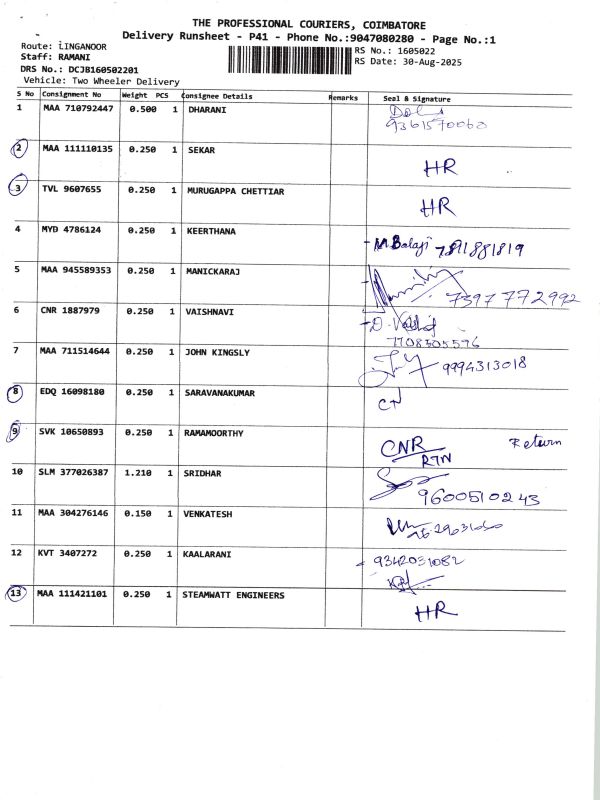 THE PROFESSIONAL COURIERS, COIMBATORE
Delivery Runsheet - P41 - Phone No.:9047080280 - Page No.:1
Route: LINGANOOR
RS No.: 1605022
Staff: RAMANI
RS Date: 30-Aug-2025
DRS No.: DCJB160502201
Vehicle: Two Wheeler Delivery
S No Consignment No Weight PCS Consignee Details Remarks Seal & Signature
1 MAA 710792447 0.500 1 DHARANI
9361570060
2 MAA 111110135 0.250 1 SEKAR
HR
3 TVL 9607655 0.250 1 MURUGAPPA CHETTIAR
HR
4 MYD 4786124 0.250 1 KEERTHANA
M.Balaji 7811881819
5 MAA 945589353 0.250 1 MANICKARAJ
7397 772992
6 CNR 1887979 0.250 1 VAISHNAVI
7708305576
7 MAA 711514644 0.250 1 JOHN KINGSLY
9994313018
8 EDQ 16098180 0.250 1 SARAVANAKUMAR
9 SVK 10650893 0.250 1 RAMAMOORTHY
CNR Return
RTN
10 SLM 377026387 1.210 1 SRIDHAR
9600510243
11 MAA 304276146 0.150 1 VENKATESH
12 KVT 3407272 0.250 1 KAALARANI
9342031082
13 MAA 111421101 0.250 1 STEAMWATT ENGINEERS
HR